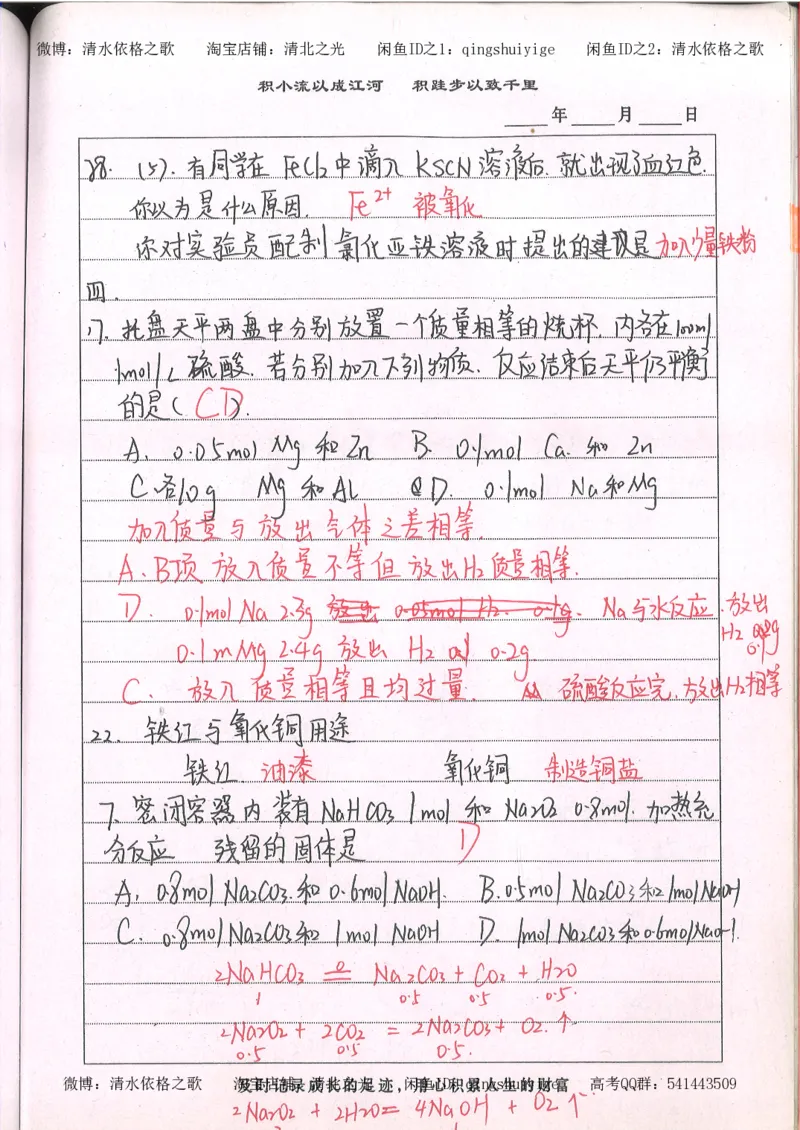 微博：清水依格之歌 淘宝店铺：清北之光 闲鱼ID之1：qingshuiyige 闲鱼ID之2：清水依格之歌
积小流以成江河 积跬步以致千里
年 月 日
28. (5). 有同学在 FeCl2 中滴入 KSCN 溶液后. 就出现了血红色.
你以为是什么原因. Fe²⁺ 被氧化
你对实验员配制氯化亚铁溶液时提出的建议是 加入少量铁粉
四.
17. 托盘天平两盘中分别放置一个质量相等的烧杯. 内各在100ml
1mol/L 硫酸. 若分别加入下列物质. 反应结束后天平仍平衡
的是( CD ).
A. 0.05mol Mg 和 Zn B. 0.1mol Ca. 和 Zn
C. 各10g Mg 和 AL D. 0.1mol Na和Mg
加入质量与放出气体之差相等.
A、B项 放入质量不等但放出H2质量相等.
D. 0.1mol Na 2.3g Na与水反应. 放出
H2 0.1g
0.1m Mg 2.4g 放出 H2 0.2g
C. 放入质量相等且均过量. 硫酸反应完. 放出H2相等
22. 铁红与氧化铜用途
铁红. 油漆 氧化铜 制造铜盐
7. 密闭容器内装有 NaHCO3 1mol 和 Na2O2 0.8mol. 加热充
分反应 残留的固体是 D
A. 0.8mol Na2CO3. 和 0.6mol NaOH. B. 0.5mol Na2CO3 和 1mol NaOH
C. 0.8mol Na2CO3 和 1mol NaOH D. 1mol Na2CO3 和 0.6mol NaOH.
2NaHCO3 ≜ Na2CO3 + CO2 + H2O
1 0.5 0.5 0.5.
2Na2O2 + 2CO2 = 2Na2CO3 + O2. ↑
0.5 0.5 0.5.
微博：清水依格之歌 淘宝店铺：清北之光 闲鱼ID之1：qingshuiyige 高考QQ群：541443509
及时记录成长的足迹，用心积累人生的财富
2Na2O2 + 2H2O = 4NaOH + O2 ↑